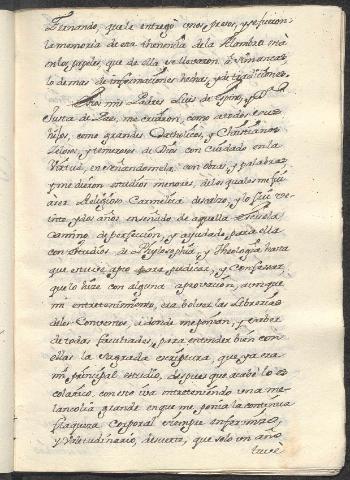 Fernando, que le entregó unos presos, y se hicieron
la memoria de esa thenencia de la Alambra está
en los papeles, que de ella se llevaron à Simancas
lo demas de informaciones hechas, y de tradiciones.
Estos mis Padres Luis de Espino, y D.ª
Justa de Paz, me criaron, como à todos sus
hijos, como grandes Catholicos, y Christianos
Zelosos, y temerosos de Dios con cuidado en la
Virtud, enseñandomela con obras, y palabras,
y me dieron estudios menores, de los quales me fui
à ser Religioso Carmelita descalzo, y lo fui ve
inte, y dos años enseñado de aquella Escuela
camino de perfección, y ayudado para ella
con Estudios de Phylosophia, y Theologia hasta
que estuve apto para predicar, y Confesar
que lo hize con alguna aprovación, aunque
mi entretenimiento, era bolver las Librerias
de los Conventos, à donde me ponian, y saber
de todas facultades, para entender bien con
ellas la Sagrada escriptura, que ya era
mi principal estudio, despues que acabé lo es
colastico, con esto iva entreteniendo una me
lancolia grande en que me ponia la continua
flaqueza corporal siempre enfermizo,
y Valetudinario, de suerte, que solo un año
tuve